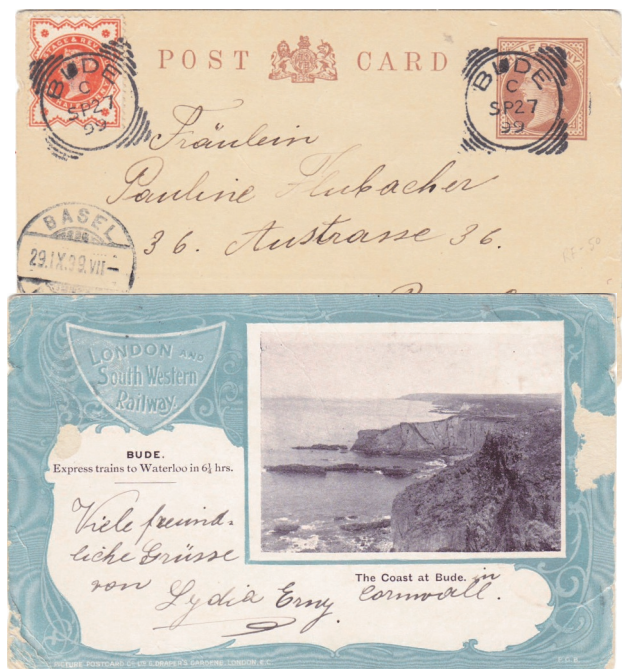 POSTAGE & REVENUE
POST CARD
HALFPENNY
BUDE
C
SP 27
99
BUDE
C
SP 27
99
Fräulein
Pauline Flubacher
36. Austrasse 36.
BASEL
29.IX.99.VII-
LONDON AND
South Western
Railway.
BUDE.
Express trains to Waterloo in 6¼ hrs.
Viele freund-
liche Grüsse
von Lydia Erny.
The Coast at Bude. in
Cornwall.
PICTURE POSTCARD CO LD 5, DRAPER'S GARDENS, LONDON, E.C.